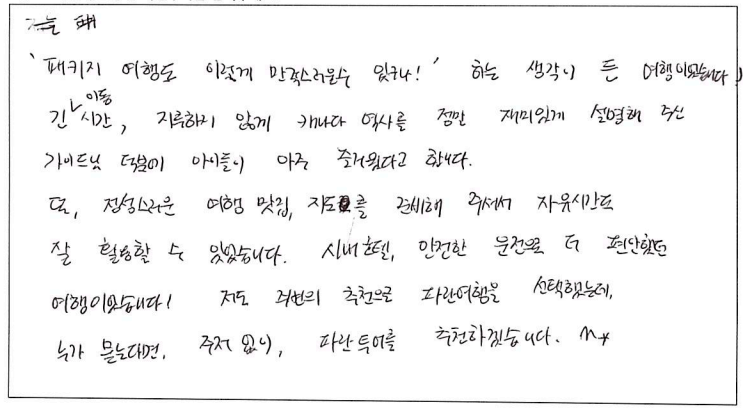 '패키지 여행도 이렇게 만족스러울수 있구나!' 하는 생각이 든 여행이었습니다!
긴 이동 시간, 지루하지 않게 캐나다 역사를 정말 재미있게 설명해 주신
가이드님 덕분에 아이들이 아주 즐거웠다고 합니다.
또, 정성스러운 여행 맛집, 지도를 준비해 주셔서 자유시간도
잘 활용할 수 있었습니다. 시내호텔, 안전한 운전으로 더 편안했던
여행이었습니다! 저도 주변의 추천으로 파란여행을 선택했는데,
누가 묻는다면, 주저 없이, 파란투어를 추천하겠습니다. ^^